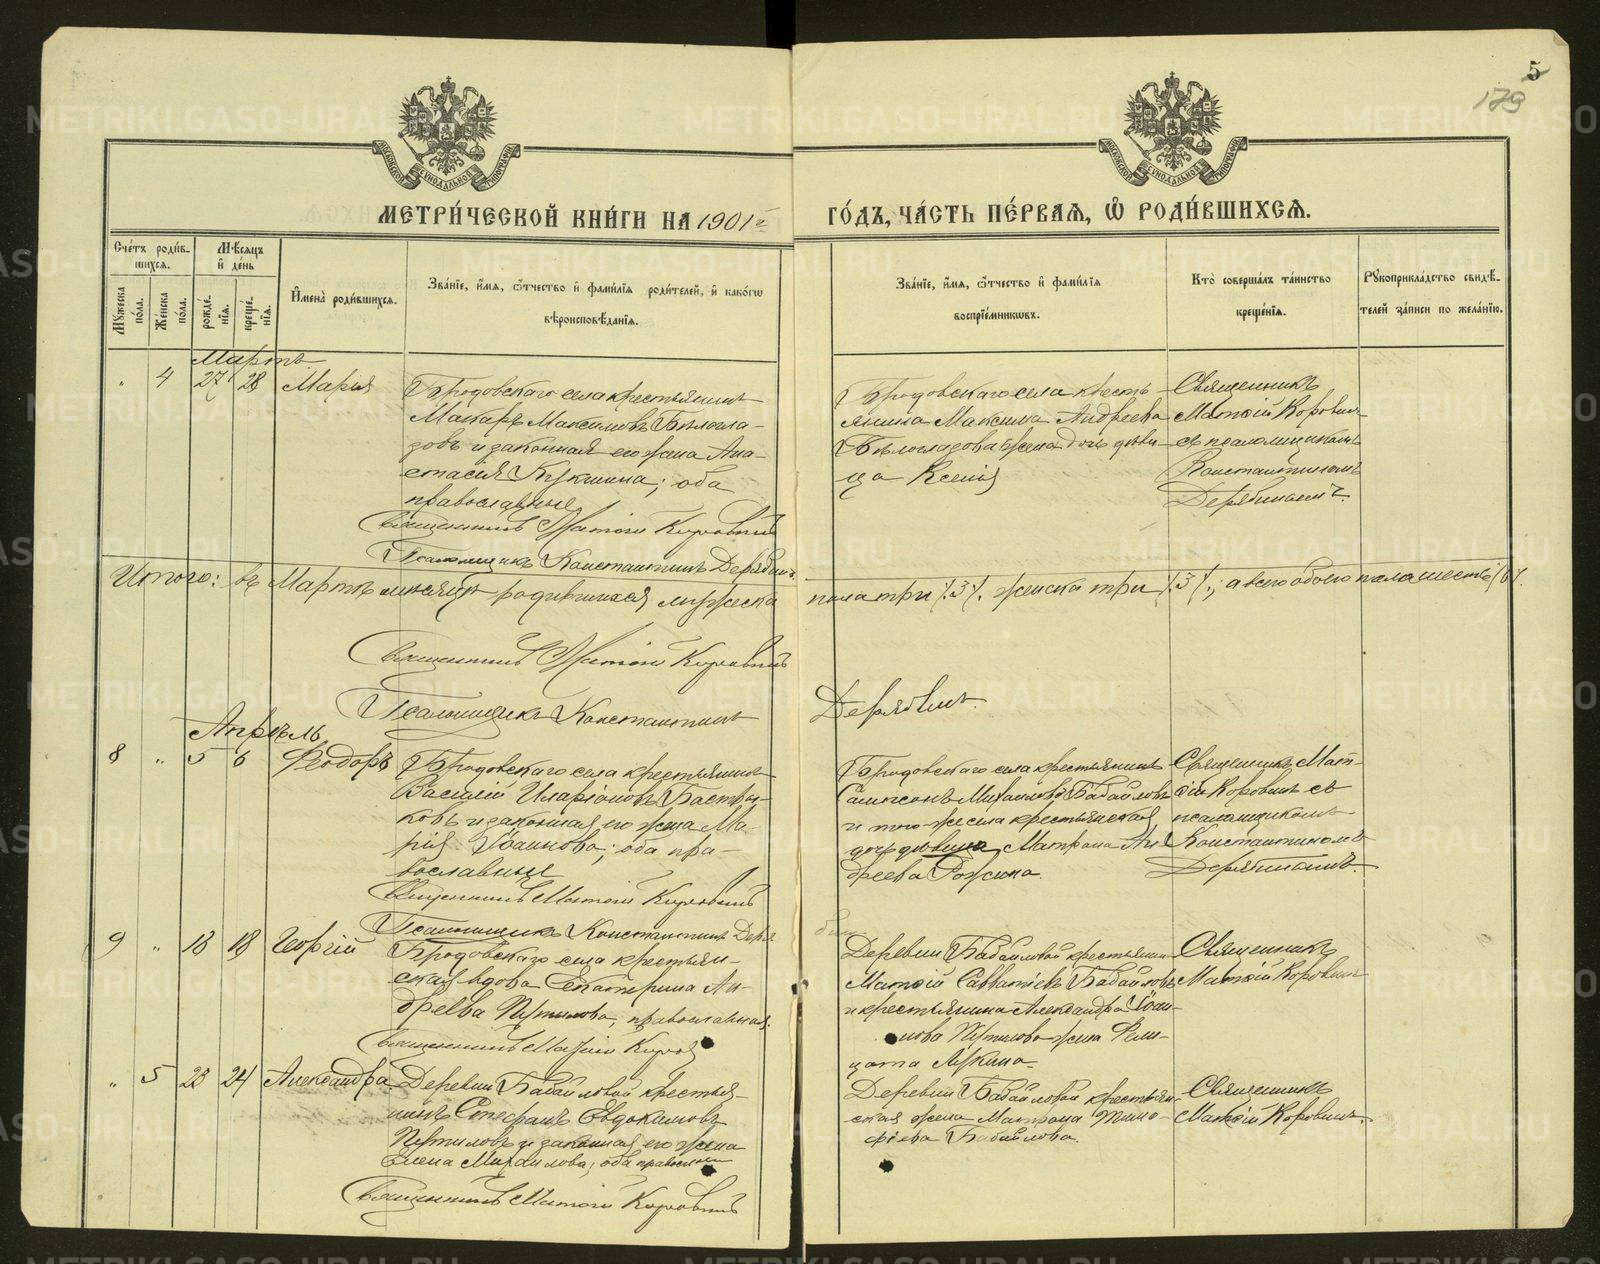 5
179
МЕТРИ́ЧЕСКОЙ КНИ́ГИ НА 1901й
ГО́ДЪ, ЧА́СТЬ ПЕ́РВАѦ, Ѿ РОДИ́ВШИХСѦ.
Сче́тъ роди́в-
шихсѧ.
Мꙋ́жеска по́ла.
Же́нска по́ла.
Мѣ́сѧцъ
и҆ де́нь
рожде́-
нїѧ.
креще́-
нїѧ.
И҆мена̀ роди́вшихсѧ.
Зва́нїе, и҆́мѧ, ѻ҆́тчество и҆ фами́лїѧ роди́телей, и҆ како́гѡ
вѣроисповѣ́данїѧ.
Зва́нїе, и҆́мѧ, ѻ҆́тчество и҆ фами́лїѧ
воспрїе́мникѡвъ.
Кто̀ соверша́лъ та́инство
креще́нїѧ.
Рꙋкоприкла́дство свидѣ́-
телей за́писи по жела́нїю.
Мартъ
" 4 27 28 Марія
Бродовскаго села крестьянинъ
Макаръ Максимовъ Бѣлогла-
зовъ и законная его жена Ана-
стасія Кукшина; оба
православные
Священникъ Матѳій Коровинъ
Псаломщикъ Константинъ Дерябинъ
Бродовскаго села кресть
янина Максима Андреева
Бѣлоглазова дочь дѣви-
ца Ксенія
Священникъ
Матѳій Коровинъ
съ псаломщикомъ
Константиномъ
Дерябинымъ.
Итого: въ Мартѣ мѣсяцѣ родившихся мужеска
пола три /3/, женска три /3/, а всего обоего пола шесть /6/.
Священникъ Матѳій Коровинъ
Псаломщикъ Константинъ
Дерябинъ.
Апрѣль
8 " 5 6 Ѳеодоръ
Бродовскаго села крестьянинъ
Василій Иларіоновъ Бастры-
ковъ и законная его жена Ма-
рія Іоаннова; оба пра-
вославные
Священникъ Матѳій Коровинъ
Псаломщикъ Константинъ Деря
бинъ
Бродовскаго села крестьянинъ
Сампсонъ Михаиловъ Бабайловъ
и того-же села крестьянская
дочь дѣвица Матрона Ан
дреева
Священникъ Мат-
ѳій Коровинъ съ
псаломщикомъ
Константиномъ
Дерябинымъ.
9 " 18 18 Георгій
Бродовскаго села крестьян-
ская вдова Екатерина Ан-
дреева Пѣтилова, православная.
Священникъ Матѳій Коров
Деревни Бабайловой крестьянин
Матѳій Савватіевъ Бабайловъ
и крестьянина Александра Іоан-
нова Пѣтилова жена Фели-
цата Лукина
Священникъ
Матѳій Коровинъ
" 5 23 24 Александра
Деревни Бабайловой крестья-
нинъ Стефанъ Евдокимовъ
Пѣтиловъ и законная его жена
Елена Михаилова; оба православные
Священникъ Матѳій Коровинъ
Деревни Бабайловой крестьян-
ская жена Матрона Тимо-
фѣева Бабайлова.
Священникъ
Матѳій Коровинъ.
METRIKI.GASO-URAL.RU